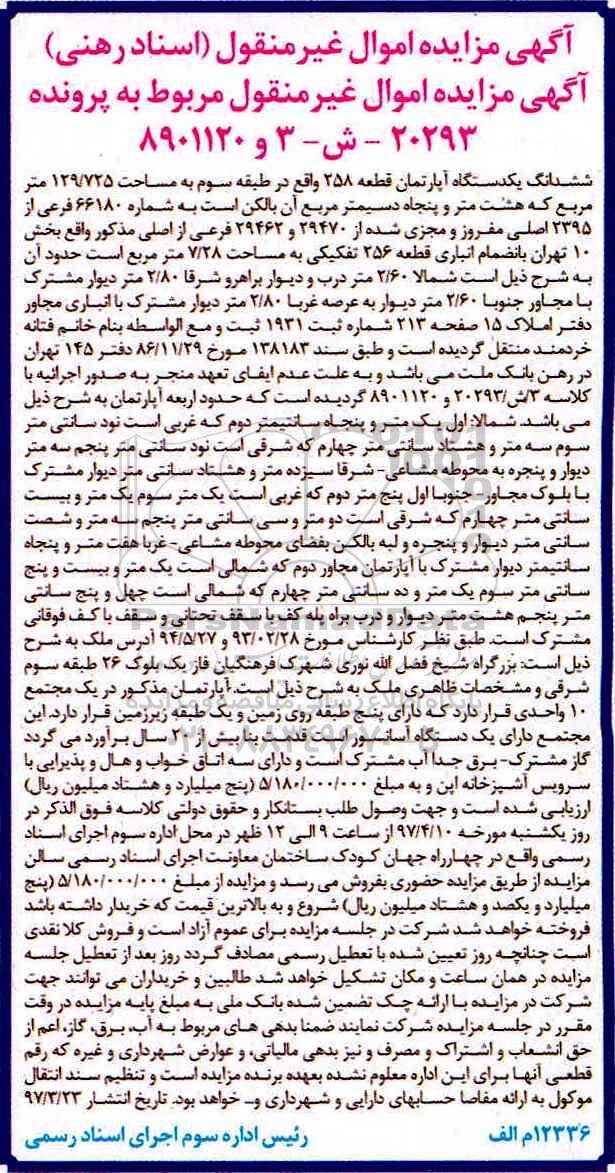 آگهی مزایده اموال غیرمنقول (اسناد رهنی)
آگهی مزایده اموال غیرمنقول مربوط به پرونده
۲۰۲۹۳ - ش- ۳ و ۸۹۰۱۱۲۰
ششدانگ یکدستگاه آپارتمان قطعه ۲۵۸ واقع در طبقه سوم به مساحت ۱۲۹/۷۲۵ متر
مربع که هشت متر و پنجاه دسیمتر مربع آن بالکن است به شماره ۶۶۱۸۰ فرعی از
۲۳۹۵ اصلی مفروز و مجزی شده از ۲۹۴۷۰ و ۲۹۴۶۲ فرعی از اصلی مذکور واقع بخش
۱۰ تهران بانضمام انباری قطعه ۲۵۶ تفکیکی به مساحت ۷/۲۸ متر مربع است حدود آن
به شرح ذیل است شمالا ۲/۶۰ متر درب و دیوار براهرو شرقا ۲/۸۰ متر دیوار مشترک
با مجاور جنوبا ۲/۶۰ متر دیوار به عرصه غربا ۲/۸۰ متر دیوار مشترک با انباری مجاور
دفتر املاک ۱۵ صفحه ۲۱۳ شماره ثبت ۱۹۳۱ ثبت و مع الواسطه بنام خانم فتانه
خردمند منتقل گردیده است و طبق سند ۱۳۸۱۸۳ مورخ ۸۶/۱۱/۲۹ دفتر ۱۴۵ تهران
در رهن بانک ملت می باشد و به علت عدم ایفای تعهد منجر به صدور اجرائیه با
کلاسه ۳/ش/۲۰۲۹۳ و ۸۹۰۱۱۲۰ گردیده است که حدود اربعه آپارتمان به شرح ذیل
می باشد. شمالا: اول یک متر و پنجاه سانتیمتر دوم که غربی است نود سانتی متر
سوم سه متر و هشتاد سانتی متر چهارم که شرقی است نود سانتی متر پنجم سه متر
دیوار و پنجره به محوطه مشاعی- شرقا سیزده متر و هشتاد سانتی متر دیوار مشترک
با بلوک مجاور- جنوبا اول پنج متر دوم که غربی است یک متر سوم یک متر و بیست
سانتی متر چهارم که شرقی است دو متر و سی سانتی متر پنجم سه متر و شصت
سانتی متر دیوار و پنجره و لبه بالکن بفضای محوطه مشاعی- غربا هفت متر و پنجاه
سانتیمتر دیوار مشترک با آپارتمان مجاور دوم که شمالی است یک متر و بیست و پنج
سانتی متر سوم یک متر و ده سانتی متر چهارم که شمالی است چهل و پنج سانتی
متر پنجم هشت متر دیوار و درب براه پله کف با سقف تحتانی و سقف با کف فوقانی
مشترک است. طبق نظر کارشناس مورخ ۹۳/۰۲/۲۸ و ۹۴/۵/۲۷ آدرس ملک به شرح
ذیل است: بزرگراه شیخ فضل الله نوری شهرک فرهنگیان فاز یک بلوک ۲۶ طبقه سوم
شرقی و مشخصات ظاهری ملک به شرح ذیل است. آپارتمان مذکور در یک مجتمع
۱۰ واحدی قرار دارد که دارای پنج طبقه روی زمین و یک طبقه زیرزمین قرار دارد. این
مجتمع دارای یک دستگاه آسانسور است قدمت بنا بیش از ۲۰ سال برآورد می گردد
گاز مشترک- برق جدا آب مشترک است و دارای سه اتاق خواب و هال و پذیرایی با
سرویس آشپزخانه اپن و به مبلغ ۵/۱۸۰/۰۰۰/۰۰۰ (پنج میلیارد و هشتاد میلیون ریال)
ارزیابی شده است و جهت وصول طلب بستانکار و حقوق دولتی کلاسه فوق الذکر در
روز یکشنبه مورخه ۹۷/۴/۱۰ از ساعت ۹ الی ۱۲ ظهر در محل اداره سوم اجرای اسناد
رسمی واقع در چهارراه جهان کودک ساختمان معاونت اجرای اسناد رسمی سالن
مزایده از طریق مزایده حضوری بفروش می رسد و مزایده از مبلغ ۵/۱۸۰/۰۰۰/۰۰۰ (پنج
میلیارد و یکصد و هشتاد میلیون ریال) شروع و به بالاترین قیمت که خریدار داشته باشد
فروخته خواهد شد شرکت در جلسه مزایده برای عموم آزاد است و فروش کلا نقدی
است چنانچه روز تعیین شده با تعطیل رسمی مصادف گردد روز بعد از تعطیل جلسه
مزایده در همان ساعت و مکان تشکیل خواهد شد طالبین و خریداران می توانند جهت
شرکت در مزایده با ارائه چک تضمین شده بانک ملی به مبلغ پایه مزایده در وقت
مقرر در جلسه مزایده شرکت نمایند ضمنا بدهی های مربوط به آب، برق، گاز، اعم از
حق انشعاب و اشتراک و مصرف و نیز بدهی مالیاتی، و عوارض شهرداری و غیره که رقم
قطعی آنها برای این اداره معلوم نشده بعهده برنده مزایده است و تنظیم سند انتقال
موکول به ارائه مفاصا حسابهای دارایی و شهرداری و... خواهد بود. تاریخ انتشار ۹۷/۳/۲۳
۱۲۳۳۶م الف
رئیس اداره سوم اجرای اسناد رسمی
ParsNamadData
پایگاه اطلاع رسانی مناقصه و مزایده
۰۲۱-۸۸۳۴۹۶۷۰-۵